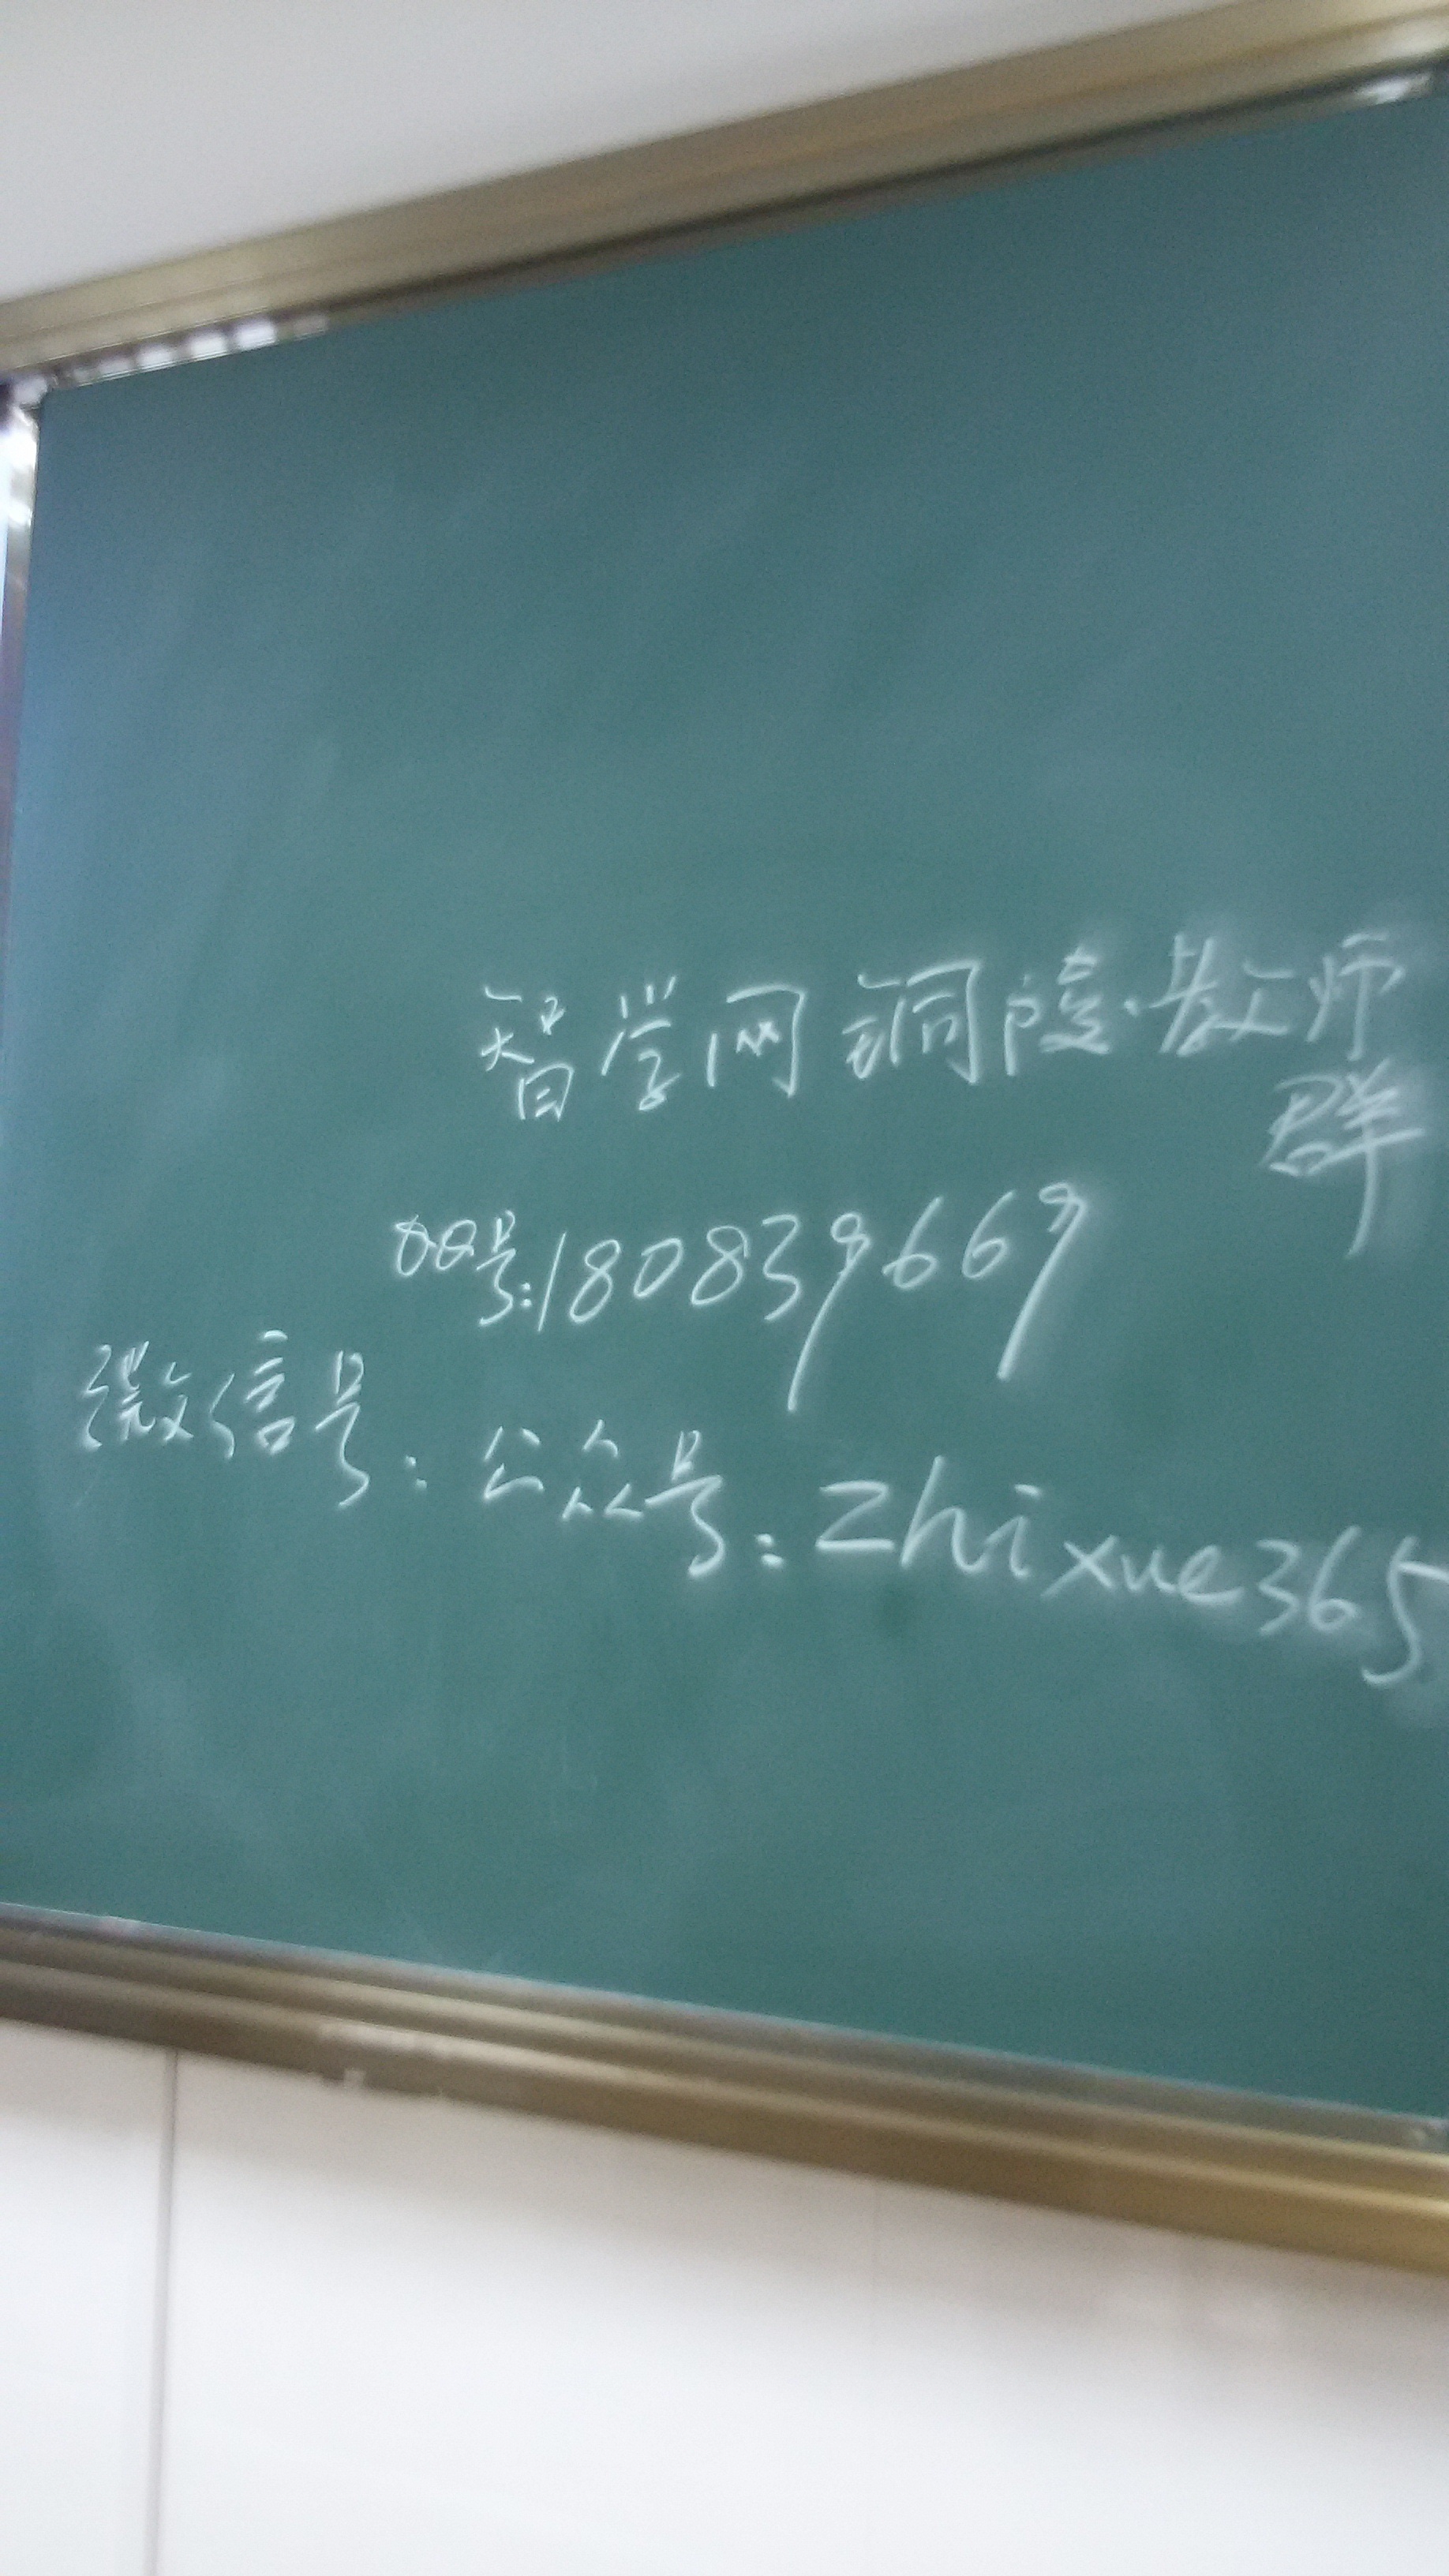 智学网铜陵教师
群
QQ号:180839669
微信号:公众号:Zhixue365